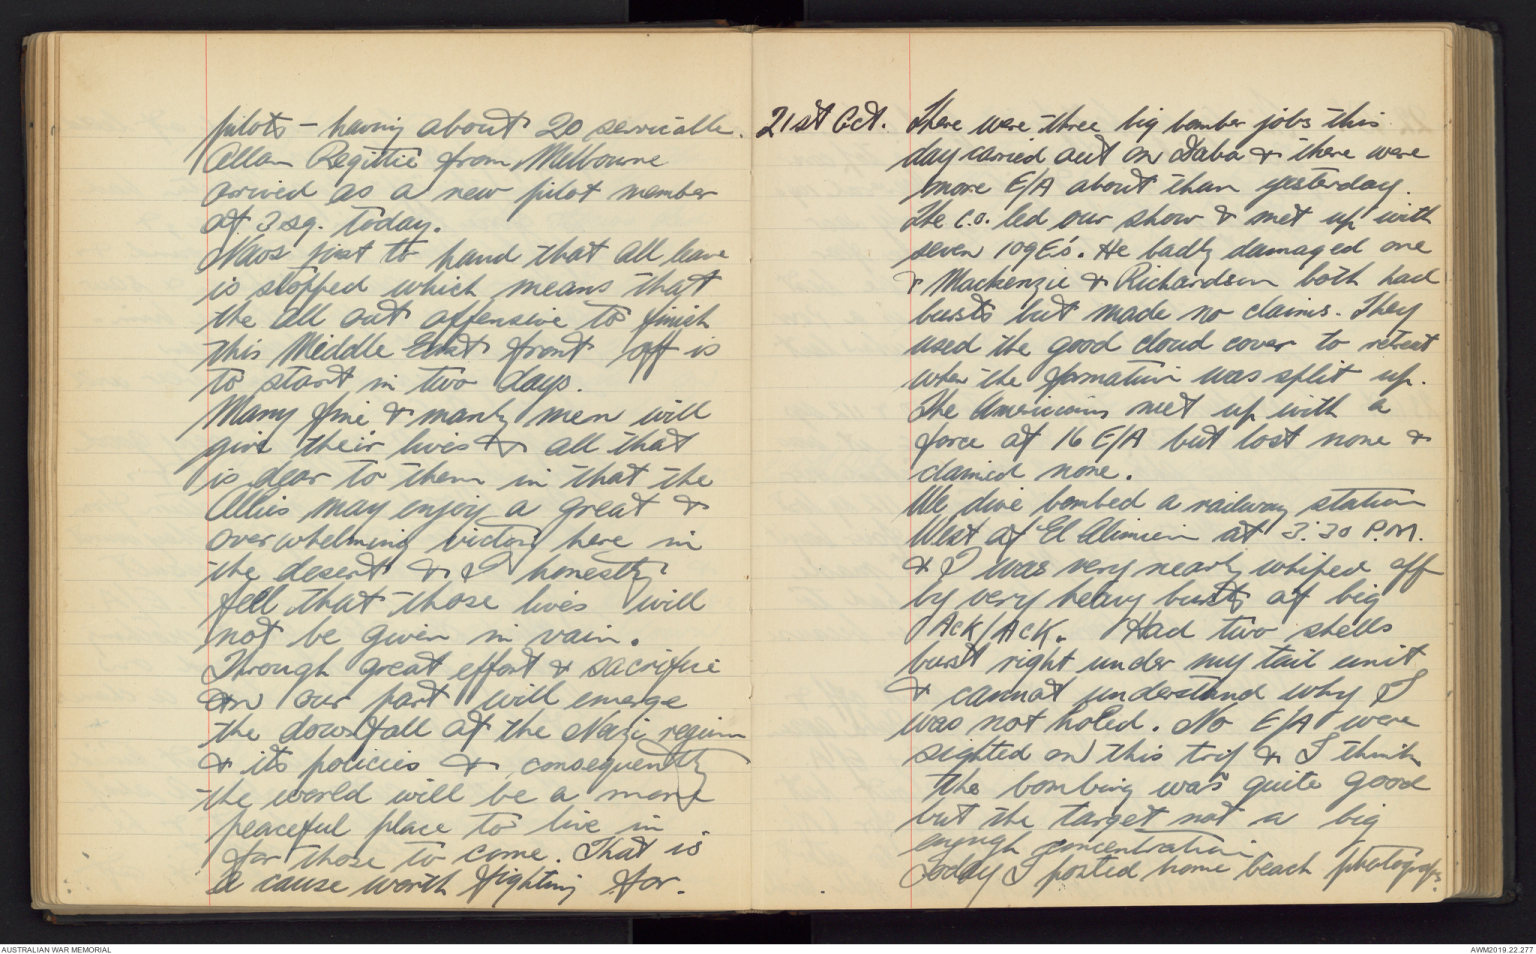 pilots - having about 20 servicable.
Allan Regittie from Melbourne
arrived as a new pilot member
of 3 sq. today.
News just to hand that all leave
is stopped which means that
the all out offensive to finish
this Middle East front off is
to start in two days.
Many fine & manly men will
give their lives & all that
is dear to them in that the
Allies may enjoy a great &
overwhelming victory here in
the desert & I honestly
fell that those lives will
not be given in vain.
Through great effort & sacrifice
on our part will emerge
the downfall of the Nazi regime
& its policies & consequently
the world will be a more
peaceful place to live in
for those to come. That is
a cause worth fighting for.
21st Oct. There were three big bomber jobs this
day carried out on Daba & there were
more E/A about than yesterday.
The C.O. led our show & met up with
seven 109E's. He badly damaged one
& Mackenzie & Richardson both had
bursts but made no claims. They
used the good cloud cover to retreat
when the formation was split up.
The Americans met up with a
force of 16 E/A but lost none &
claimed none.
We dive bombed a railway station
West of El Alimien at 3.30 P.M.
& I was very nearly whiped off
by very heavy bursts of big
Ack/Ack. Had two shells
burst right under my tail unit
& cannot understand why I
was not holed. No E/A were
sighted on this trip & I think
the bombing was quite good
but the target not a big
enough concentration
Today I posted home beach photographs.
AUSTRALIAN WAR MEMORIAL
AWM2019.22.277